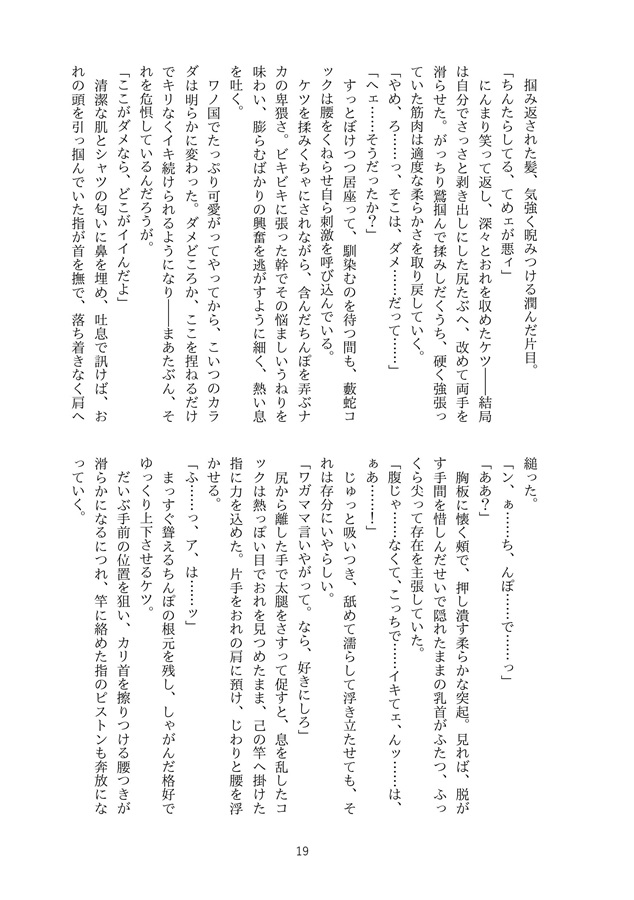 掴み返された髪、気強く睨みつける潤んだ片目。
「ちんたらしてる、てめェが悪ィ」
にんまり笑って返し、深々とおれを収めたケツ――結局
は自分でさっさと剥き出しにした尻たぶへ、改めて両手を
滑らせた。がっちり鷲掴んで揉みしだくうち、硬く強張っ
ていた筋肉は適度な柔らかさを取り戻していく。
「やめ、ろ……っ、そこは、ダメ……だって……」
「へェ……そうだったか？」
すっとぼけつつ居座って、馴染むのを待つ間も、藪蛇コ
ックは腰をくねらせ自ら刺激を呼び込んでいる。
ケツを揉みくちゃにされながら、含んだちんぽを弄ぶナ
カの卑猥さ。ビキビキに張った幹でその悩ましいうねりを
味わい、膨らむばかりの興奮を逃がすように細く、熱い息
を吐く。
ワノ国でたっぷり可愛がってやってから、こいつのカラ
ダは明らかに変わった。ダメどころか、ここを捏ねるだけ
でキリなくイキ続けられるようになり――まあたぶん、そ
れを危惧しているんだろうが。
「ここがダメなら、どこがイイんだよ」
清潔な肌とシャツの匂いに鼻を埋め、吐息で訊けば、お
れの頭を引っ掴んでいた指が首を撫で、落ち着きなく肩へ
縋った。
「ン、ぁ……ち、んぽ……で……っ」
「ああ？」
胸板に懐く頬で、押し潰す柔らかな突起。見れば、脱が
す手間を惜しんだせいで隠れたままの乳首がふたつ、ふっ
くら尖って存在を主張していた。
「腹じゃ……なくて、こっちで……イキてェ、んッ……は、
ぁあ……！」
じゅっと吸いつき、舐めて濡らして浮き立たせても、そ
れは存分にいやらしい。
「ワガママ言いやがって。なら、好きにしろ」
尻から離した手で太腿をさすって促すと、息を乱したコ
ックは熱っぽい目でおれを見つめたまま、己の竿へ掛けた
指に力を込めた。片手をおれの肩に預け、じわりと腰を浮
かせる。
「ふ……っ、ア、は……ッ」
まっすぐ聳えるちんぽの根元を残し、しゃがんだ格好で
ゆっくり上下させるケツ。
だいぶ手前の位置を狙い、カリ首を擦りつける腰つきが
滑らかになるにつれ、竿に絡めた指のピストンも奔放にな
っていく。
19